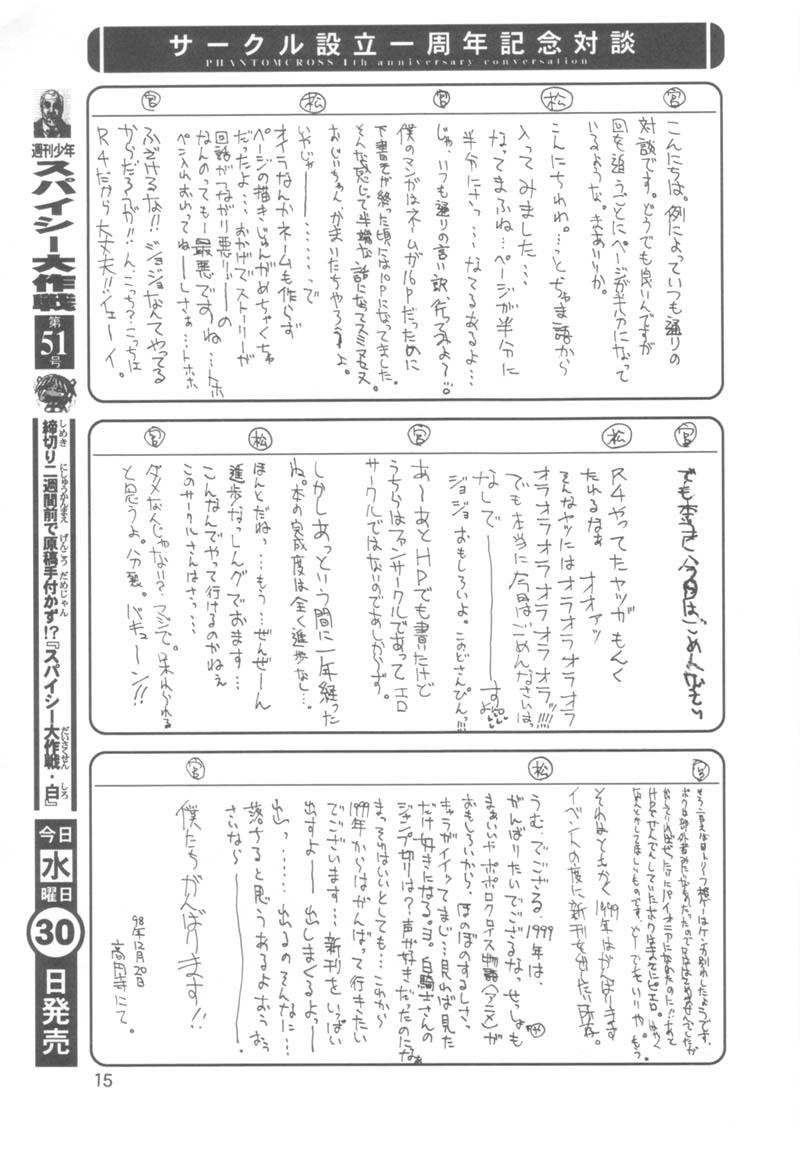 サークル設立一周年記念対談
PHANTOMCROSS 1th anniversary conversation
宮
こんにちは。例によっていつも通りの
対談です。どうでも良いんですが
回を追うごとにページが半分になって
いるような。
松
こんにちわ。…とちゃま話から
入ってみました…
なってまふね…ページが半分に
半分にさっ…なてるあるよ…
宮
じゃ、いつも通りの言い訳、行ってみよ〜!!
僕のマンガはネームが16Pだったために
下書きが終った頃には10Pになってました。
そんな感じで半端な話になってスミマセヌ
おじいちゃん、かまいたちやろうよ。
松
いやじゃー………で
オイラなんかネームも作らず
ページの描きじゅんがめちゃくちゃ
だったよ…おかげでストーリーが
回話がつながり悪リーの
なんのっても最悪ですね…トホ
ペン入れおわってねーしさぁ…トホホ
宮
ふざけるな!!ジョジョなんてやってる
からだろが!!
R4だから大丈夫!!イェーイ
宮
でも本当に今回はごめんなさい
松
R4やってたヤツがもんく
たれるなぁ
オオァッ
そんなヤツにはオラオラオラオラ
オラオラオラオラオラオラッ!!!!
でも本当に今回はごめんなさいはっ
なしでーーーすよ
ジョジョおもしろいよ。このどさんぴんっ!!!
宮
あ〜あとHPでも書いたけど
うちらはファンサークルであってエロ
サークルではないのであしからず。
しかしあっという間に一年経った
ね。本の完成度は全く進歩なし…。
松
ほんとだねっ…もう…ぜんぜーん
進歩なっしんグでおます…
こんなんでやって行けるのかねぇ
このサークルさんはさっ…
宮
ダメなんじゃない?マジで。呆れられる
と思うよ。分裂。バキューン!!
宮
それはともかく1999年はがんばります
イベントの度に新刊を出したい所存。
松
うむ、でござる。1999年は、
がんばりたいでござるなっせっしゃも
まぁいいやポポロクロイス物語(アニメ)が
おもしろいから、ほのぼのするしさっ
キャラがイイッてまじ…見れば見た
だけ好きになる。ヨ。白騎士さんの
ジャンプ切りは?声が好きだったのになぁ
まっそれはいいとしても…これから
1999年からはがんばって行きたい
でございます…新刊をいっぱい
出すよー出しまくるよー
出っ……出るのそんなに…
落ちると思うあるよおぅおぅ
さいならーーー
宮
僕たちがんばります!!
98年12月20日
高田寺にて。
週刊少年
スパイシー大作戦
第51号
締切り二週間前で原稿手付かず!?『スパイシー大作戦・白』
しめき にしゅうかんまえ げんこう だめじゃん だいさくせん しろ
今日水曜日30日発売
15